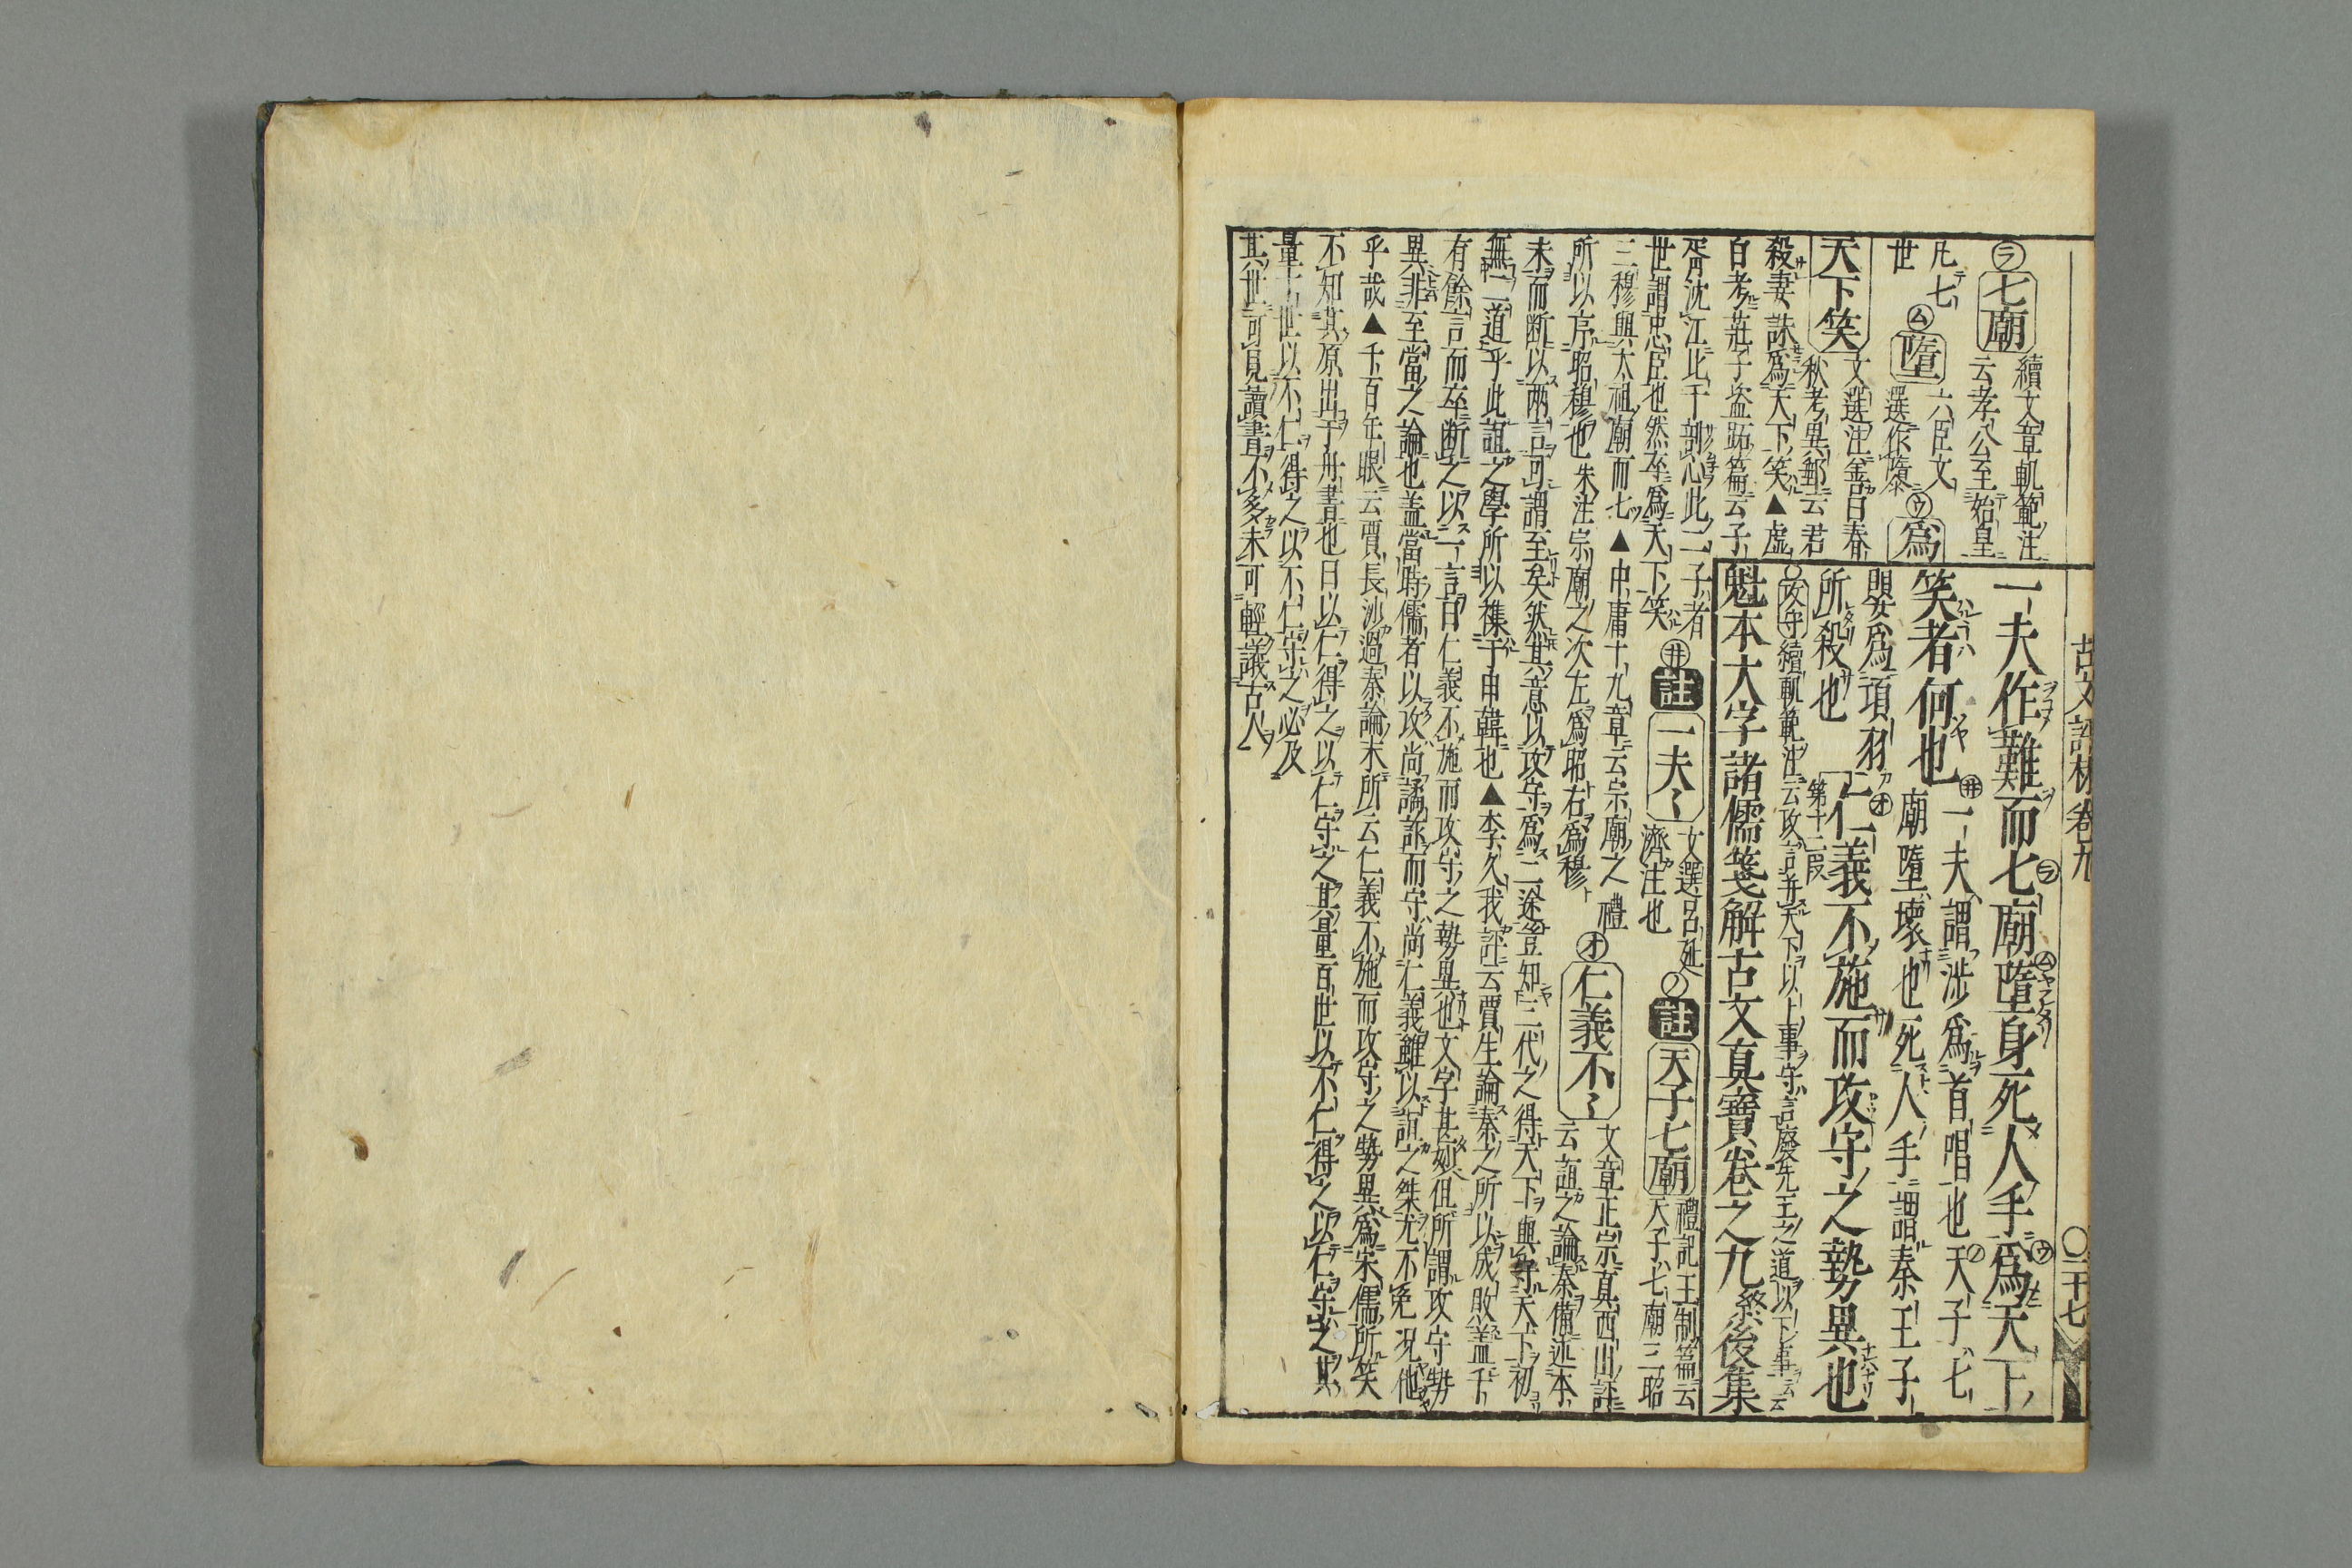 古文評林卷九
○二十七
一夫作難而七廟墮身死人手爲天下
笑者何也
一夫謂涉爲首唱也天子七
廟墮壞也死人手謂秦王子
嬰爲項羽
所殺也
仁義不施而攻守之勢異也
第十二段
攻守
續軌範注云攻言并天下以上事守言廢先王之道以下事云云
魁本大字諸儒箋解古文眞寶卷之九終後集
七廟
續文章軌範注
云孝公至始皇
凡七
世
墮
六臣文
選作隳
爲
天下笑
文選注善曰春
秋考異郵云君
殺妻誅爲天下笑▲虛
白考莊子盜跖篇云子
胥沈江比干剖心此二子者
世謂忠臣也然卒爲天下笑
註
一夫〻
文選呂延
濟注也
註
天子七廟
禮記王制篇云
天子七廟三昭
三穆與太祖廟而七▲中庸十九章云宗廟之禮
所以序昭穆也朱注宗廟之次左爲昭右爲穆
仁義不〻
文章正宗眞西山評
云誼之論秦備述本
末而斷以兩言可謂至矣然其意以攻守爲二途豈知三代之得天下與守天下初
無二道乎此誼之學所以襍于申韓也▲李久我評云賈生論秦之所以成敗蓋千
有餘言而卒斷之以一言曰仁義不施而攻守之勢異也文字甚妙但所謂攻守勢
異非至當之論也蓋當時儒者以攻尚譎詐而守尚仁義雖以誼之桀尤不免況他
乎哉▲千百年眼云賈長沙過秦論末所云仁義不施而攻守之勢異爲宋儒所笑
不知其原出于丹書也曰以仁得之以仁守之其量百世以不仁得之以仁守之其
量十世以不仁得之以不仁守之必及
其世可見讀書不多未可輕議古人